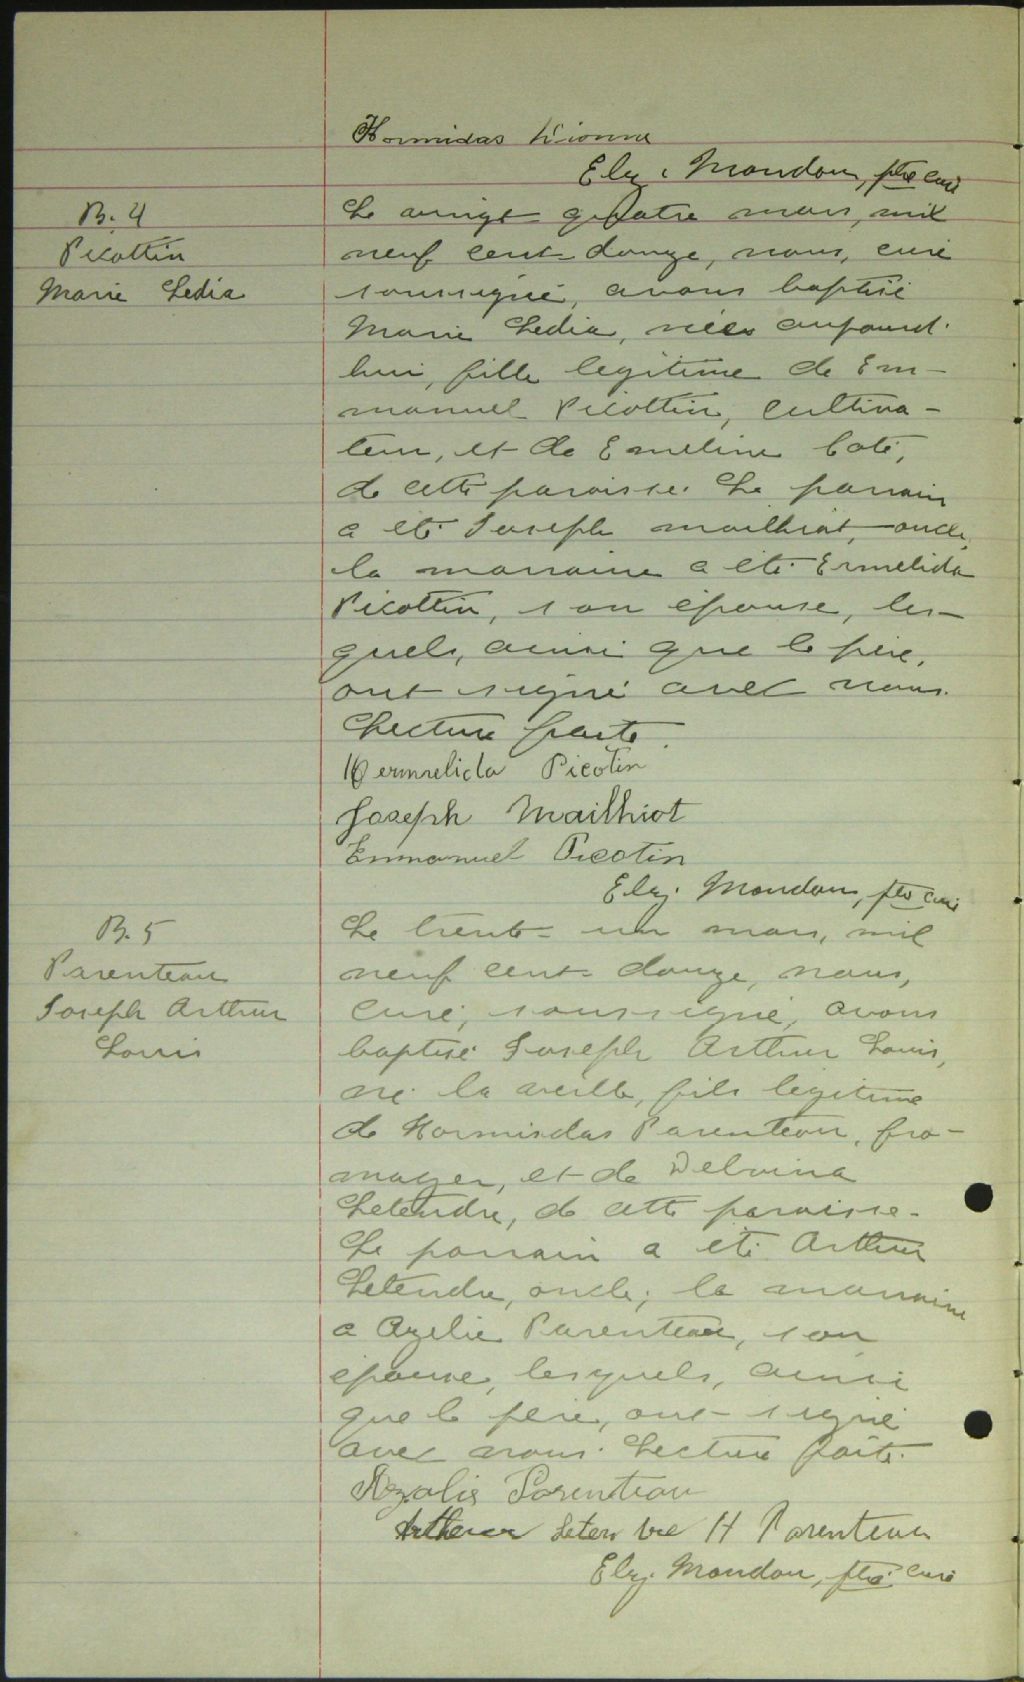 Hormidas
Elz. Mondou, ptre curé
B. 4
Picottin
Marie Ledia
Le vingt quatre mars, mil
neuf cent douze, nous, curé
soussigné, avons baptisé
Marie Ledia, née aujourd'
hui, fille légitime de Em-
manuel Picottin, cultiva-
teur, et de Emelina Coté,
de cette paroisse. Le parrain
a été Joseph Mailhiot, oncle,
la marraine a été Ermelida
Picottin, son épouse, les-
quels, ainsi que le père,
ont signé avec nous.
Lecture faite.
Hermelida Picotin
Joseph Mailhiot
Emmanuel Picotin
Elz. Mondou, ptre curé
B. 5
Parenteau
Joseph Arthur
Louis
Le trente-un mars, mil
neuf cent douze, nous,
curé, soussigné, avons
baptisé Joseph Arthur Louis,
né la veille, fils légitime
de Hormisdas Parenteau, fro-
mager, et de Delvina
Letendre, de cette paroisse.
Le parrain a été Arthur
Letendre, oncle; la marraine
a Azelie Parenteau, son
épouse, lesquels, ainsi
que le père, ont signé
avec nous. Lecture faite.
Azalie Parenteau
Arthur Letendre H Parenteau
Elz. Mondou, ptre curé